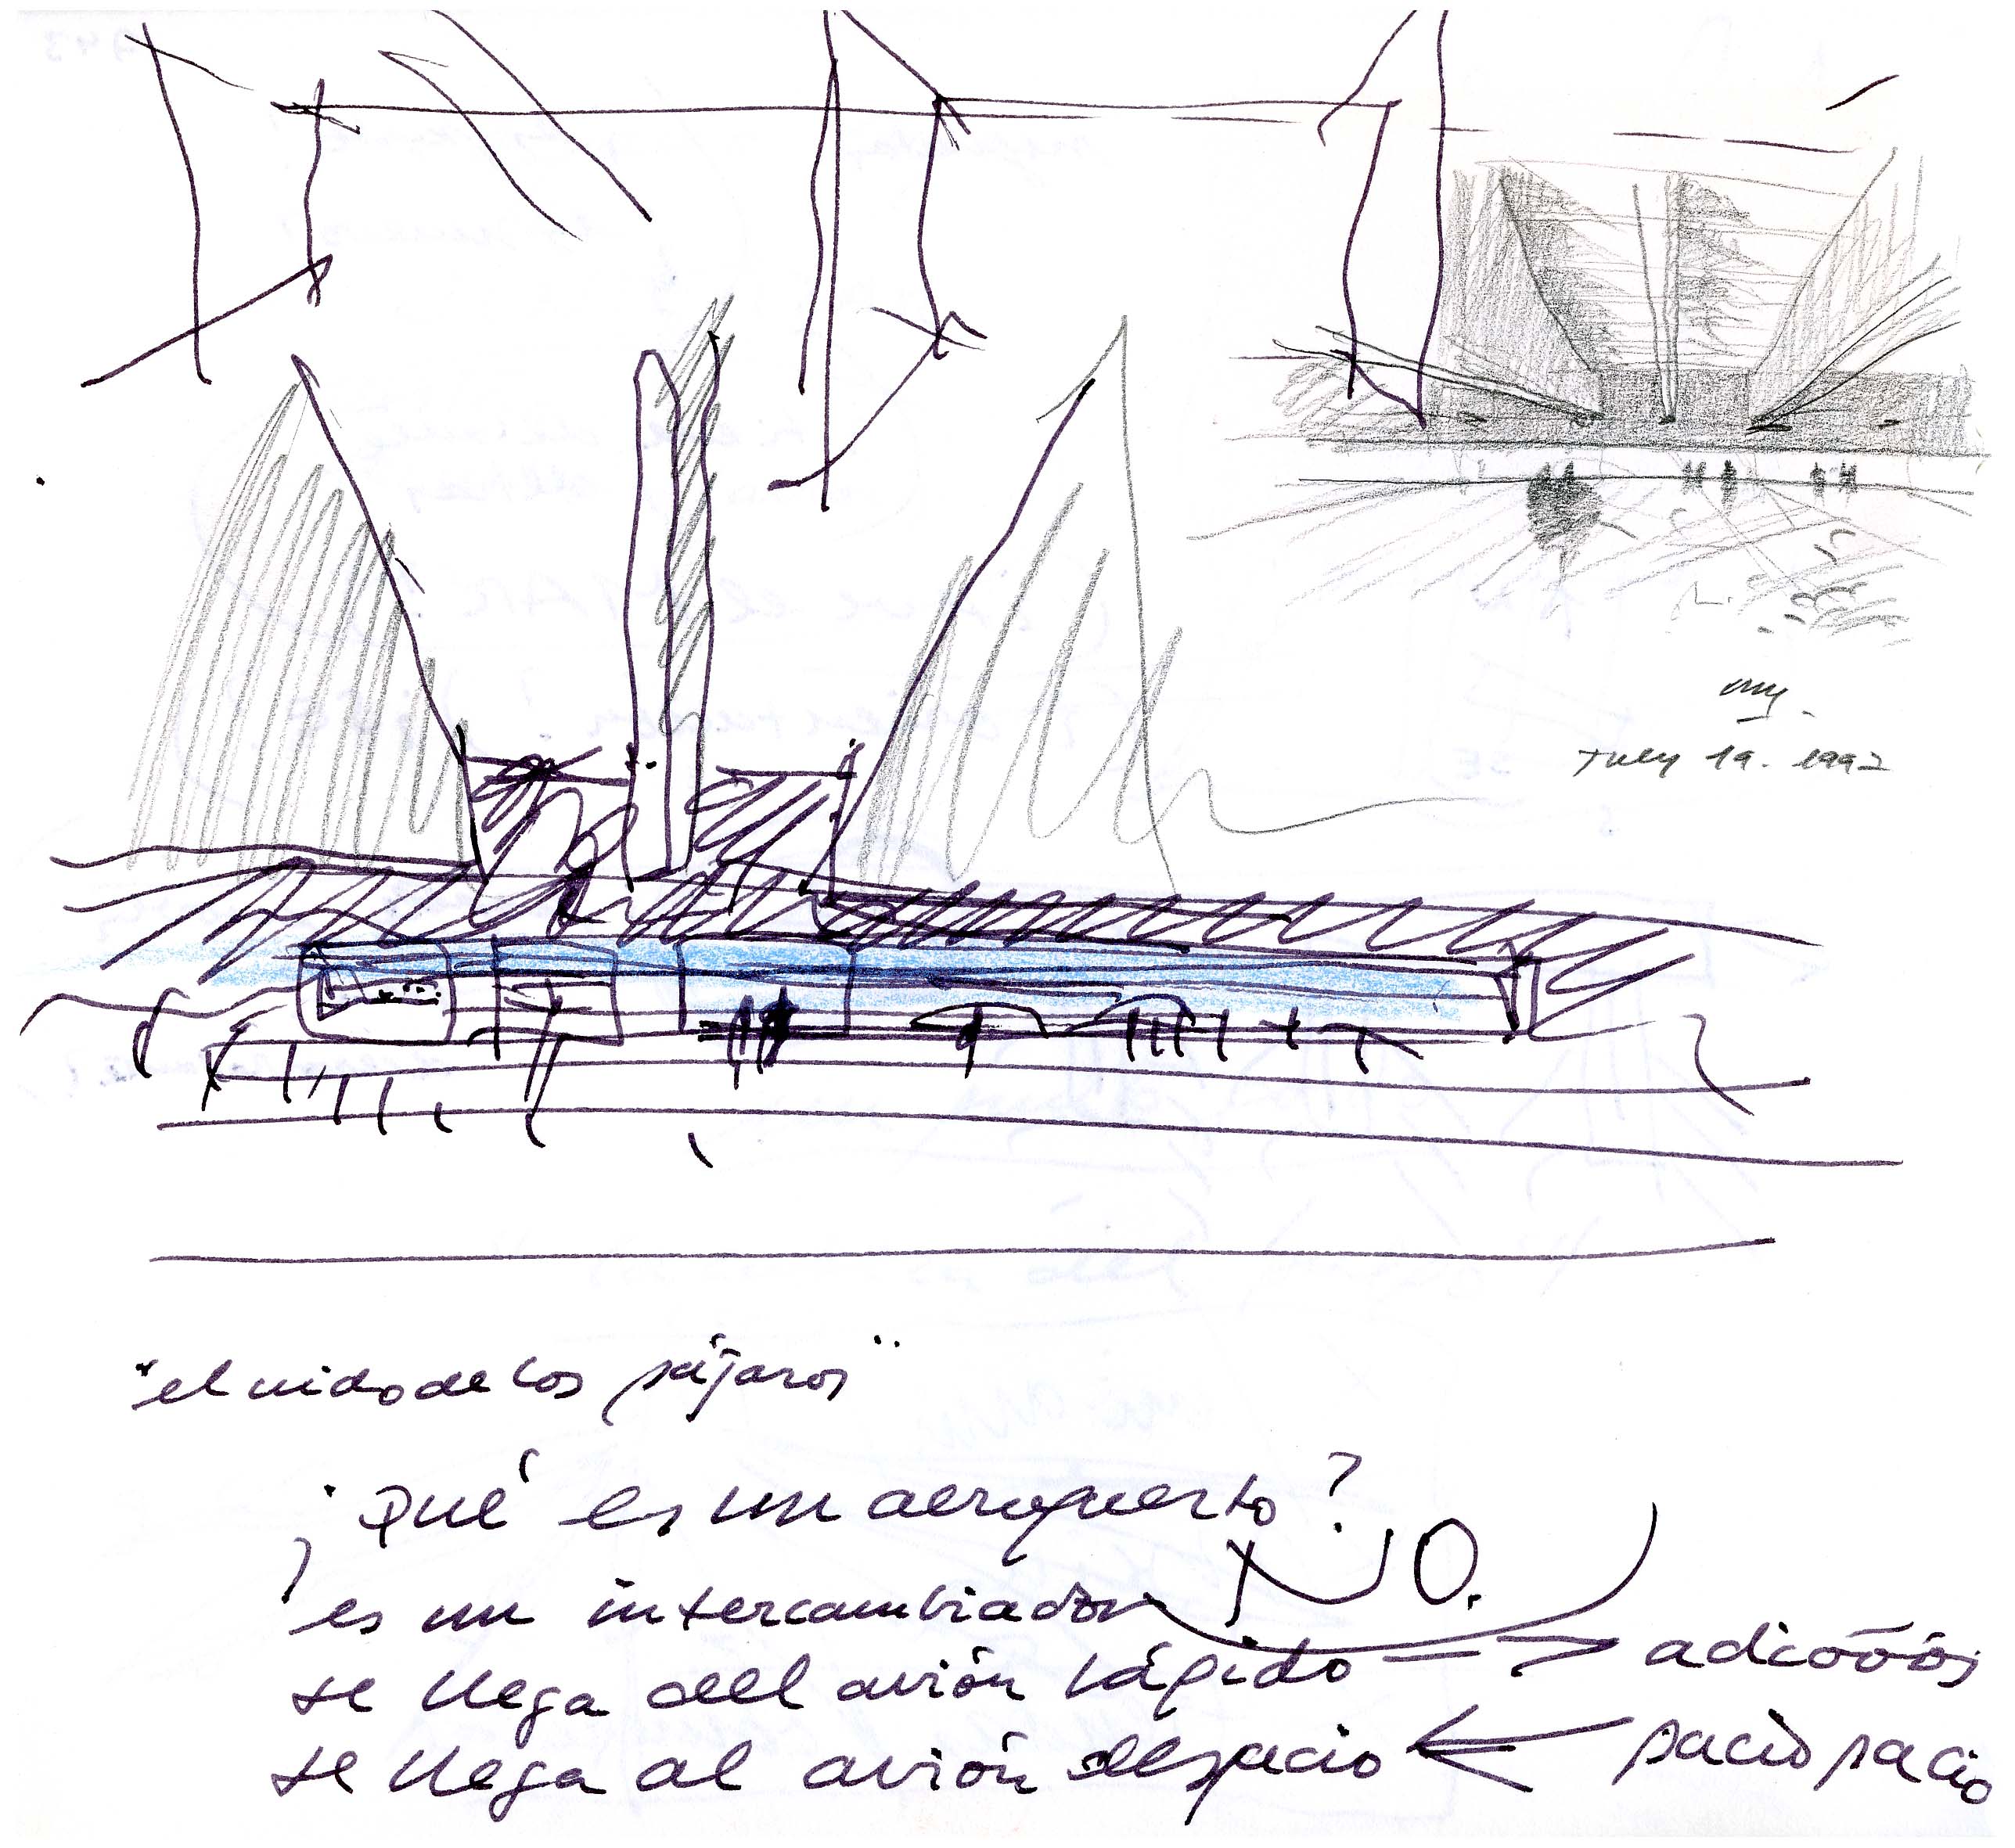 July 19. 1992
"el nido de los pájaros"
¿Qué es un aeropuerto?
NO.
es un intercambiador
se llega del avión rápido → adioōōs
se llega al avión despacio ← pacio pacio